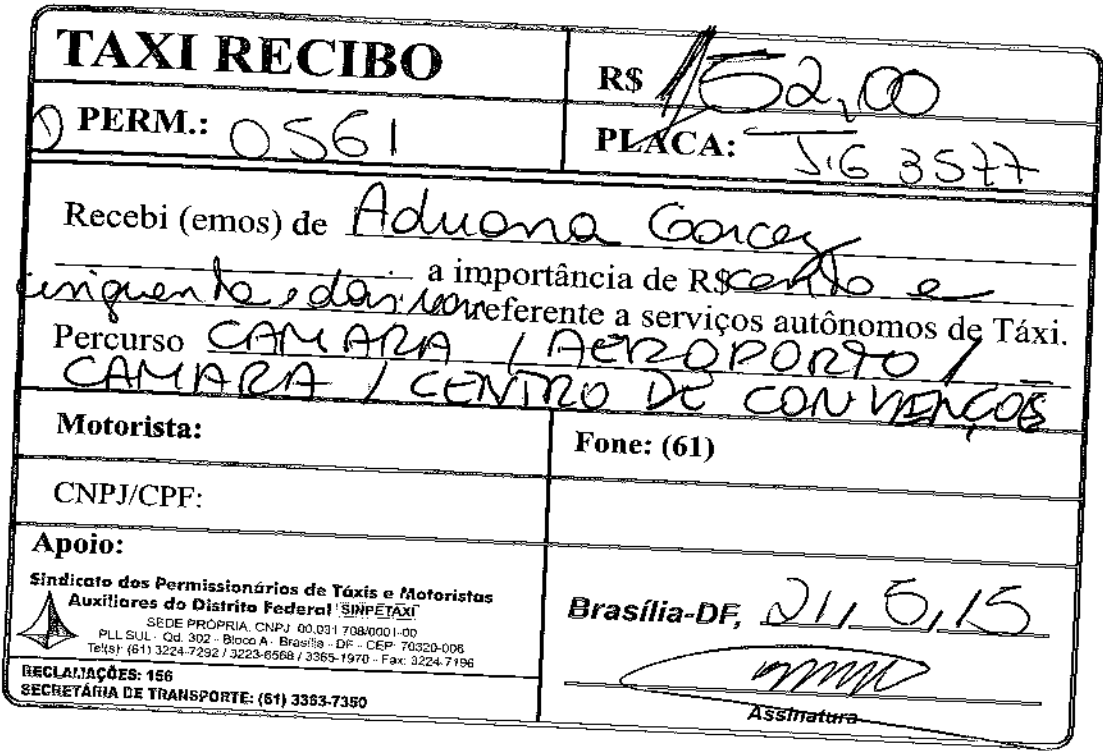 TAXI RECIBO
R$ 152,00
PERM.: 0561
PLACA: JG 3577
Recebi (emos) de Aduana Garcez
a importância de R$ cento e
cinquenta e dois reais referente a serviços autônomos de Táxi.
Percurso CAMARA / AEROPORTO /
CAMARA / CENTRO DE CONVENÇOES
Motorista:
Fone: (61)
CNPJ/CPF:
Apoio:
Sindicato dos Permissionários de Táxis e Motoristas
Auxiliares do Distrito Federal SINPETAXI
SEDE PRÓPRIA. CNPJ 00.031.708/0001-00
PLL SUL - Qd. 302 - Bloco A - Brasília - DF - CEP: 70320-006
Tel(s): (61) 3224-7292 / 3223-6568 / 3365-1970 - Fax: 3224-7196
RECLAMAÇÕES: 156
SECRETÁRIA DE TRANSPORTE: (61) 3363-7350
Brasília-DF, 21, 5, 15
Assinatura